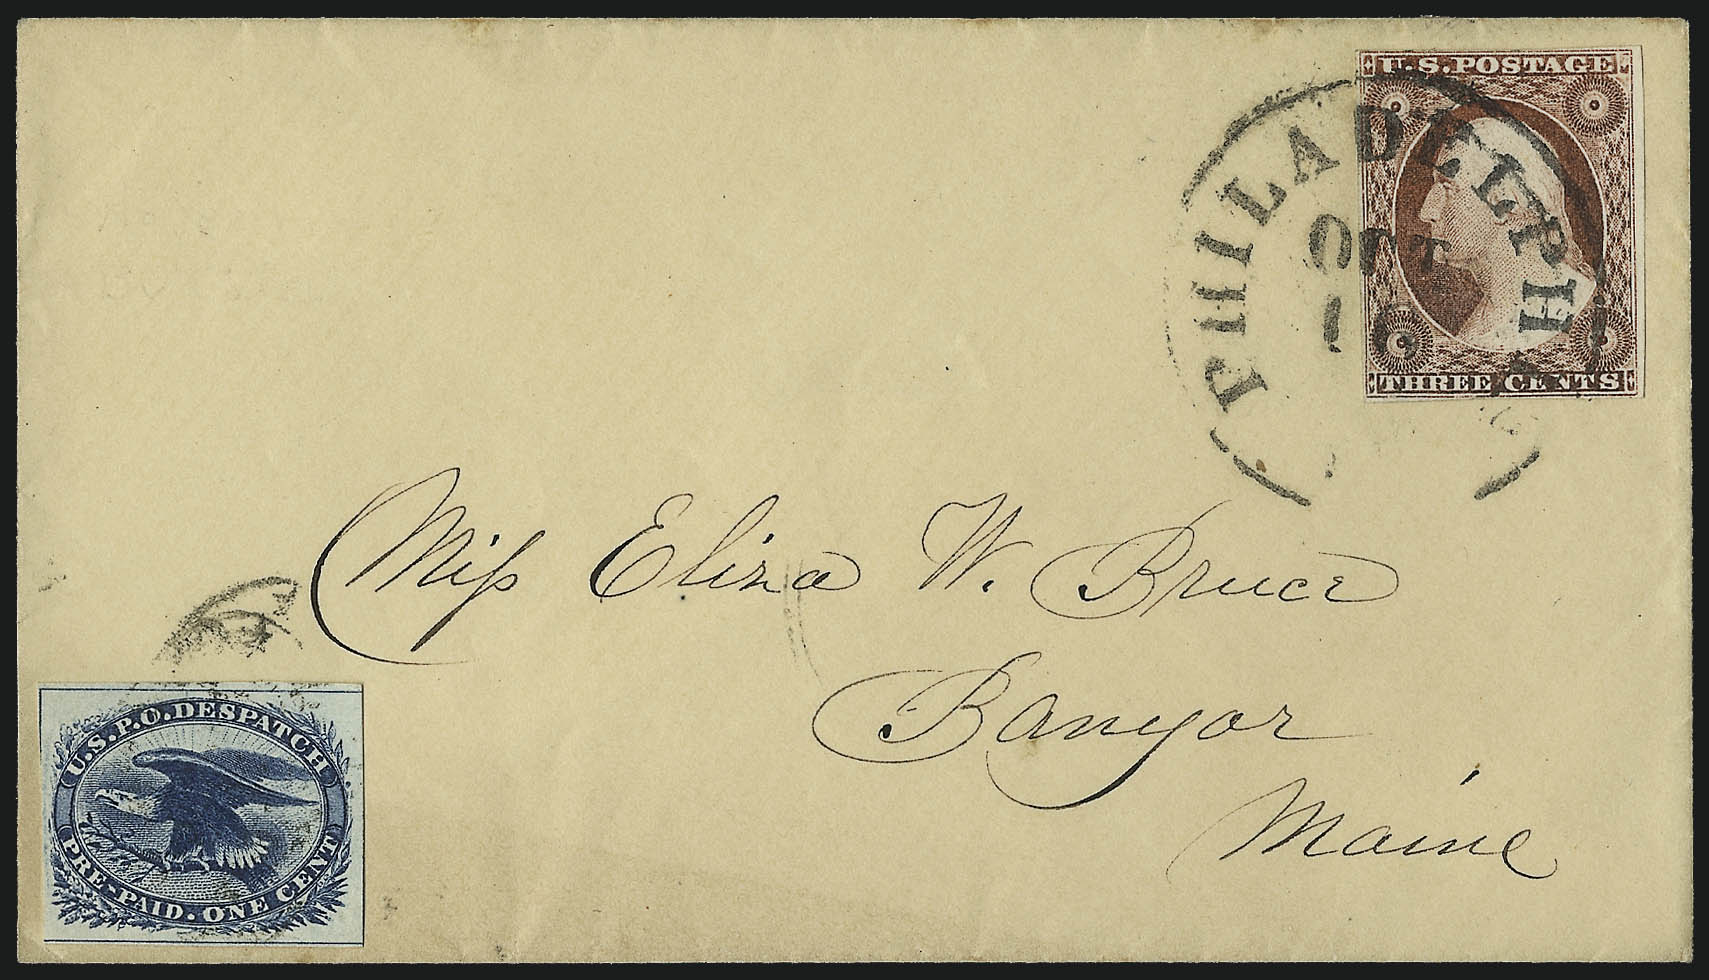 U.S. POSTAGE
PHILADELPHIA
OCT
THREE CENTS
Miss Eliza W. Bruce
Bangor
Maine
U.S.P.O. DESPATCH
PRE-PAID. ONE CENT